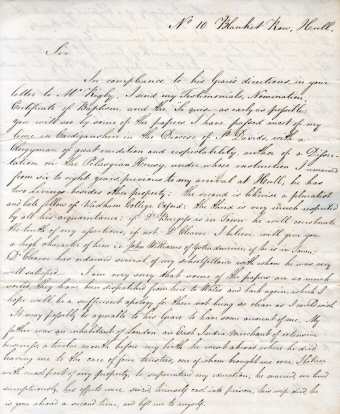 No 10 Blanket Row, Hull.
Sir
In compliance to his Grace's directions in your
letter to Mr Rigby, I send my Testimonials, Nomination,
Certificate of Baptism, and the Si quis as early as possible,
you will see by some of the papers I have passed most of my
time in Cardiganshire in the Diocese of St Davids, with a
Clergyman of great erudition and respectability author of a Disser-
tation on the Pelasgian Heresy, under whose instruction I remained
from six to eight years previous to my arrival at Hull; he has
two Livings besides other property: the second is likewise a pluralist
and late fellow of Wadham College Oxford: the third is very much respected
by all his acquaintance: if Dr Burgess is in Town he will corroborate
the truth of my assertions, if not Dr Cleaver I believe will give you
a high character of him i.e. John Williams of Ystradmeiric, if he is in Town;
Dr Cleaver has ordained several of his with whom he was very
well satisfied. I am very sorry that some of the papers are so much
they have been dispatched from here to Wales and back again, which I
hope will be a sufficient apology for their not being as clean as I could wish
It may possibly be agreeable to his Grace to have some account of me. My
father was an inhabitant of London an East India Merchant of extensive
business, a twelve month before my birth he went abroad where he died
leaving me to the care of four trustees, one of whom brought me over Heiress
with most part of my property, to superintend my education, he married and lived
sumptuously, his effects were seized himself cast into prison, his wife died he
in year married a second time, and left me to myself.